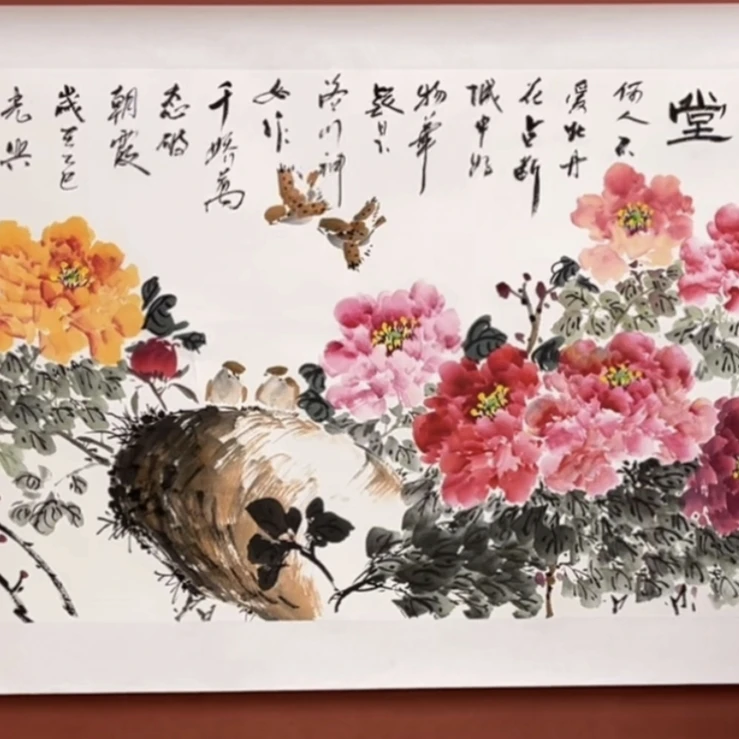 堂
何人不
爱牡丹
花占断
城中好
物華
疑是
洛川神
女作
千娇萬
态破
朝霞
歲乙巳